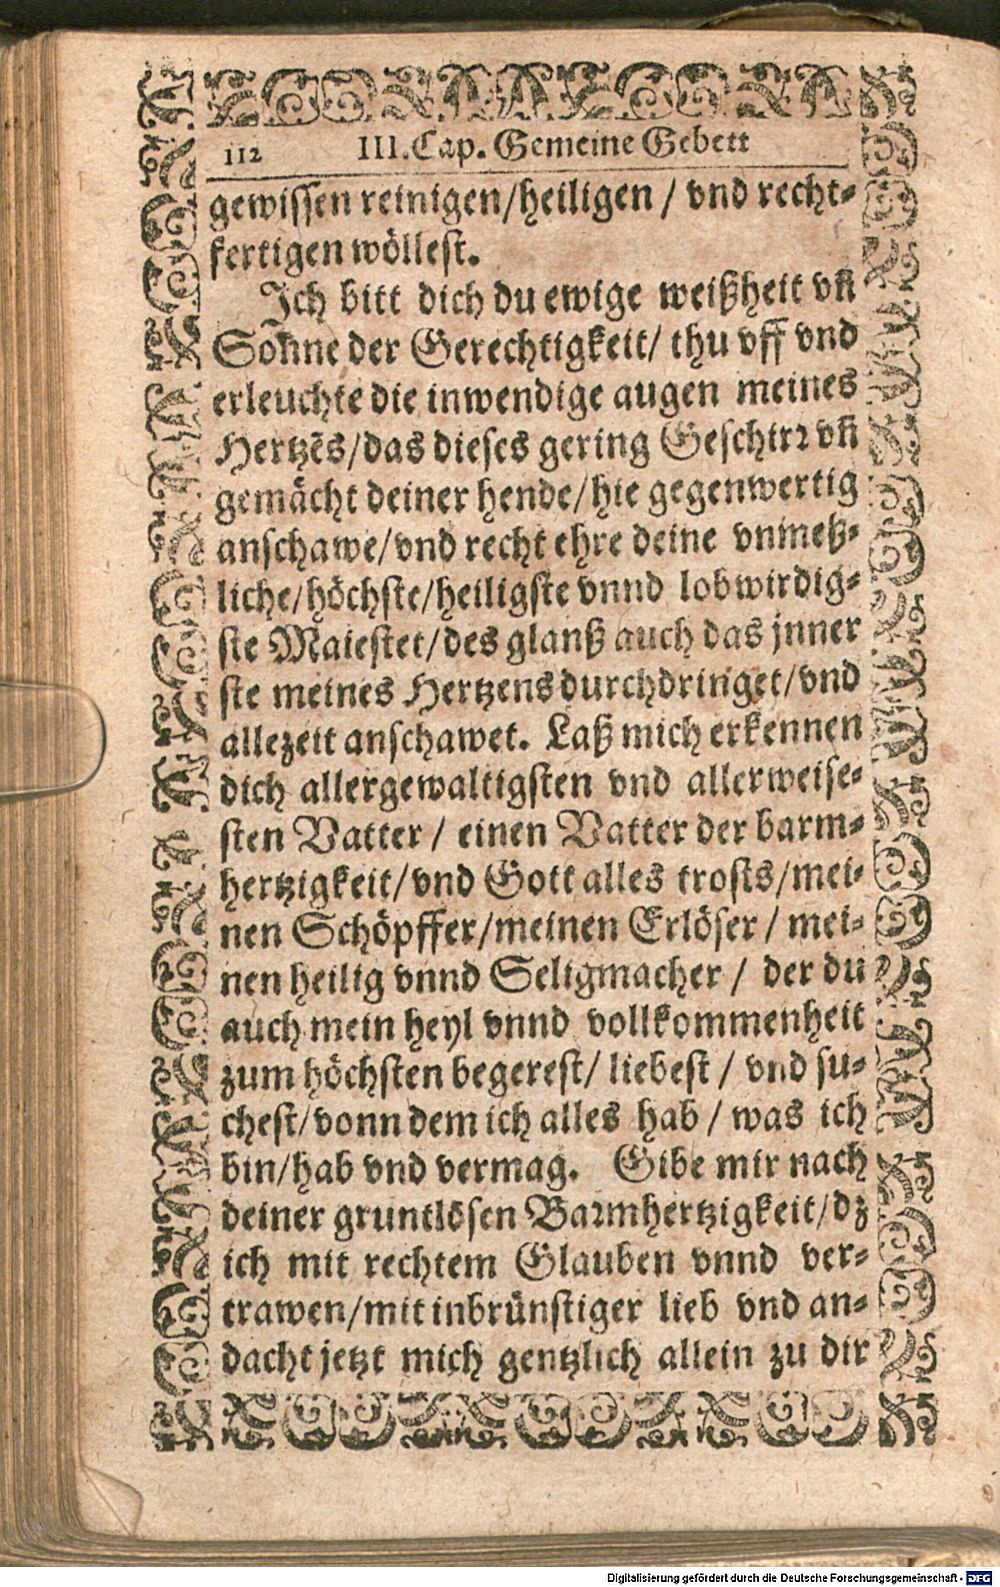 112 III. Cap. Gemeine Gebett
gewissen reinigen/heiligen / vnd recht-
fertigen wöllest.
Jch bitt dich du ewige weißheit vn̄
Soñne der Gerechtigkeit/ thu vff vnd
erleuchte die inwendige augen meines
Hertzēs/das dieses gering Geschirꝛ vn̄
gemächt deiner hende/hie gegenwertig
anschawe/vnd recht ehre deine vnmeß-
liche/höchste/heiligste vnnd lobwirdig-
ste Maiestet/des glanß auch das jnner
ste meines Hertzens durchdringet/vnd
allezeit anschawet. Laß mich erkennen
dich allergewaltigsten vnd allerweise-
sten Vatter / einen Vatter der barm-
hertzigkeit/vnd Gott alles trosts/mei-
nen Schöpffer/meinen Erlöser / mei-
nen heilig vnnd Seligmacher / der du
auch mein heyl vnnd vollkommenheit
zum höchsten begerest/ liebest / vnd su-
chest/vonn dem ich alles hab / was ich
bin/hab vnd vermag. Gibe mir nach
deiner gruntlösen Baꝛmhertzigkeit/dz
ich mit rechtem Glauben vnnd ver-
trawen/mit inbrünstiger lieb vnd an-
dacht jetzt mich gentzlich allein zu dir
Digitalisierung gefördert durch die Deutsche Forschungsgemeinschaft - DFG